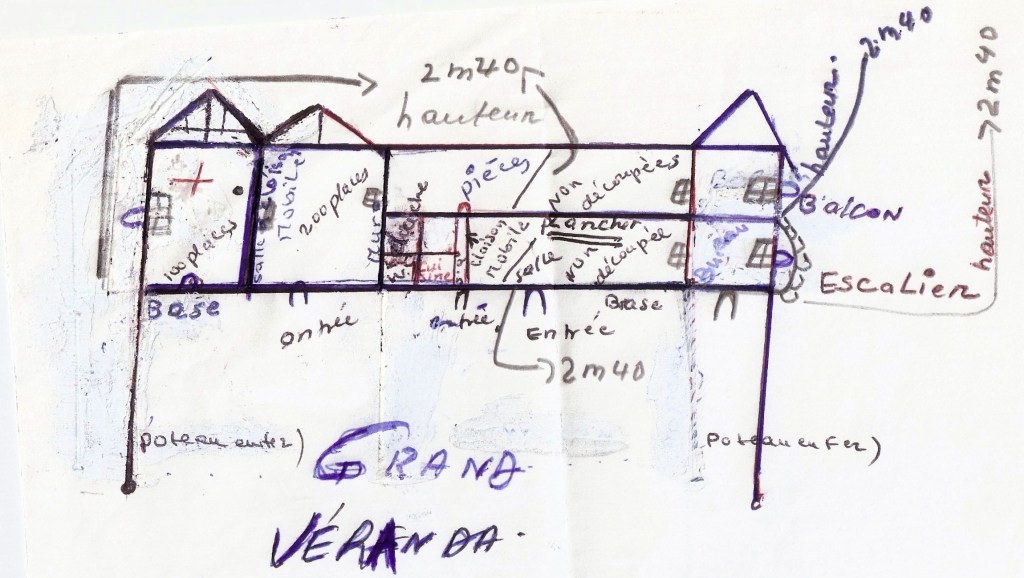 2m40
hauteur
hauteur.
2.m40
hauteur → 2m40
100 places
salle
Mobile
200 places
Mur
pièces
Non
découpées
Plancher
cloison
Mobile
salle
Non
découpée
cuisine
Bureau
B'alcon
EscaLier
Base
entrée
entrée
Entrée
Base
2m40
poteau en fer)
poteau en Fer)
GRAND.
VÉRANDA.